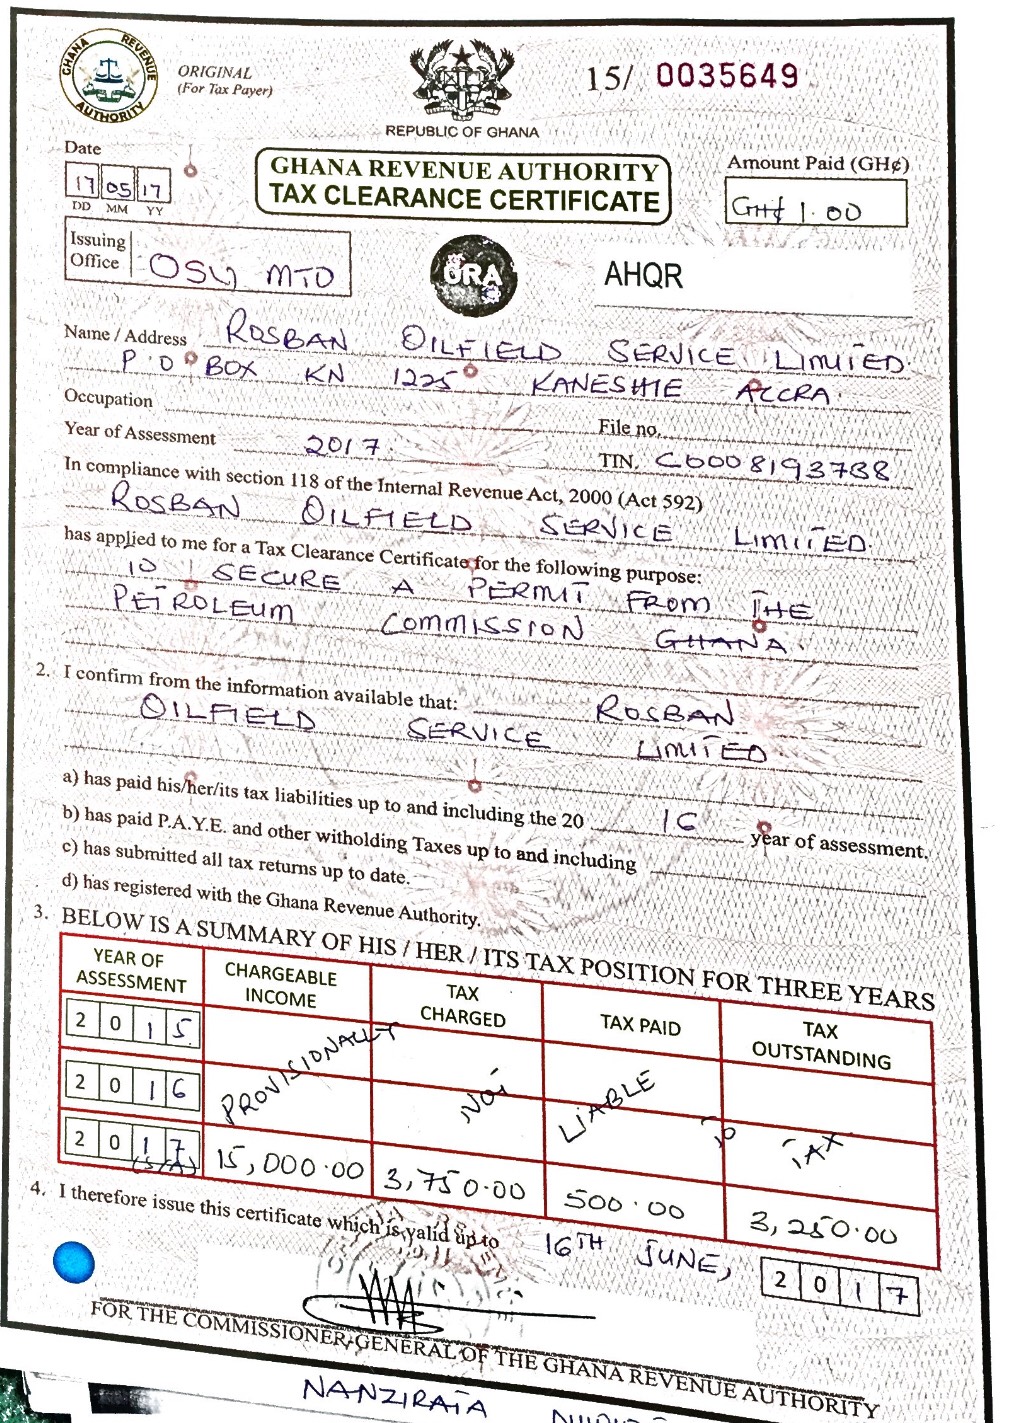 GHANA REVENUE AUTHORITY
ORIGINAL
(For Tax Payer)
REPUBLIC OF GHANA
15/ 0035649
Date
17 05 17
DD MM YY
GHANA REVENUE AUTHORITY
TAX CLEARANCE CERTIFICATE
Amount Paid (GH¢)
GH¢ 1.00
Issuing Office OSU MTO
GRA
AHQR
Name / Address ROSBAN OILFIELD SERVICE LIMITED
P.O BOX KN 1225 KANESHIE ACCRA.
Occupation
File no.
Year of Assessment 2017.
TIN. C0008193738
In compliance with section 118 of the Internal Revenue Act, 2000 (Act 592)
ROSBAN OILFIELD SERVICE LIMITED.
has applied to me for a Tax Clearance Certificate for the following purpose:
TO SECURE A PERMIT FROM THE
PETROLEUM COMMISSION GHANA.
2. I confirm from the information available that: ROSBAN
OILFIELD SERVICE LIMITED
a) has paid his/her/its tax liabilities up to and including the 20 16 year of assessment.
b) has paid P.A.Y.E. and other witholding Taxes up to and including
c) has submitted all tax returns up to date.
d) has registered with the Ghana Revenue Authority.
3. BELOW IS A SUMMARY OF HIS / HER / ITS TAX POSITION FOR THREE YEARS
YEAR OF ASSESSMENT CHARGEABLE INCOME TAX CHARGED TAX PAID TAX OUTSTANDING
2015
2016 PROVISIONALLY NOT LIABLE TO TAX
2017 (S/A) 15,000.00 3,750.00 500.00 3,250.00
4. I therefore issue this certificate which is valid up to 16TH JUNE, 2017
FOR THE COMMISSIONER-GENERAL OF THE GHANA REVENUE AUTHORITY
NANZIRATA